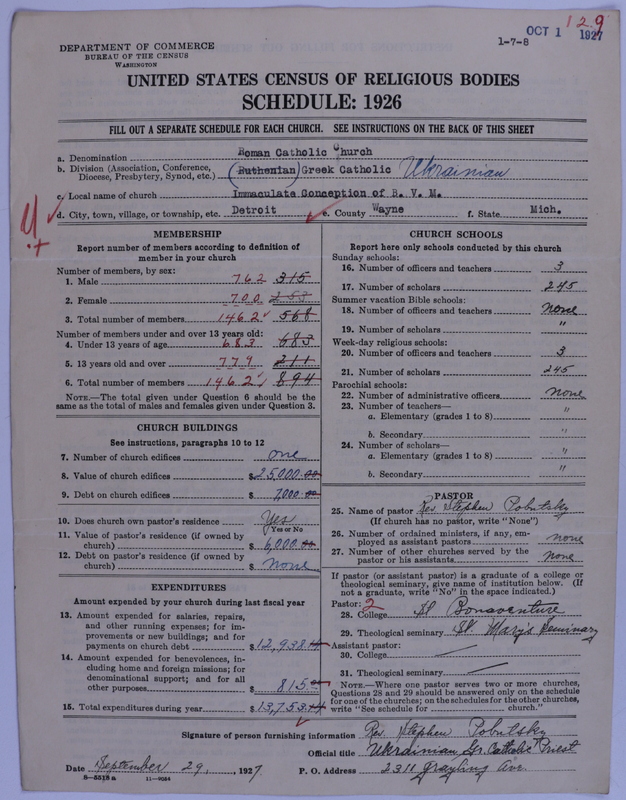 12.9
OCT 1 1927
1-7-8
DEPARTMENT OF COMMERCE
BUREAU OF THE CENSUS
WASHINGTON
UNITED STATES CENSUS OF RELIGIOUS BODIES
SCHEDULE: 1926
FILL OUT A SEPARATE SCHEDULE FOR EACH CHURCH. SEE INSTRUCTIONS ON THE BACK OF THIS SHEET
a. Denomination Roman Catholic Church
b. Division (Association, Conference, Diocese, Presbytery, Synod, etc.) (Ruthenian) Greek Catholic Ukrainian
c. Local name of church Immaculate Conception of B. V. M.
d. City, town, village, or township, etc. Detroit e. County Wayne f. State Mich.
MEMBERSHIP
Report number of members according to definition of
member in your church
Number of members, by sex:
1. Male 762 315
2. Female 700 253
3. Total number of members 1462 568
Number of members under and over 13 years old:
4. Under 13 years of age 683 683
5. 13 years old and over 779 211
6. Total number of members 1462 894
NOTE.—The total given under Question 6 should be
same as the total of males and females given under Question 3.
CHURCH BUILDINGS
See instructions, paragraphs 10 to 12
7. Number of church edifices one
8. Value of church edifices $25,000.00
9. Debt on church edifices $ 7,000.00
10. Does church own pastor's residence Yes
Yes or No
11. Value of pastor's residence (if owned by
church) $ 6,000.00
12. Debt on pastor's residence (if owned by
church) $ none
EXPENDITURES
Amount expended by your church during last fiscal year
13. Amount expended for salaries, repairs,
and other running expenses; for im-
provements or new buildings; and for
payments on church debt $12,938.14
14. Amount expended for benevolences, in-
cluding home and foreign missions; for
denominational support; and for all
other purposes $ 815.00
15. Total expenditures during year $13,753.14
CHURCH SCHOOLS
Report here only schools conducted by this church
Sunday schools:
16. Number of officers and teachers 3
17. Number of scholars 245
Summer vacation Bible schools:
18. Number of officers and teachers none
19. Number of scholars "
Week-day religious schools:
20. Number of officers and teachers 3
21. Number of scholars 245
Parochial schools:
22. Number of administrative officers none
23. Number of teachers—
a. Elementary (grades 1 to 8) "
b. Secondary "
24. Number of scholars—
a. Elementary (grades 1 to 8) "
b. Secondary "
PASTOR
25. Name of pastor Rev. Stephen Pobutsky
(If church has no pastor, write "None")
26. Number of ordained ministers, if any, em-
ployed as assistant pastors none
27. Number of other churches served by the
pastor or his assistants none
If pastor (or assistant pastor) is a graduate of a college or
theological seminary, give name of institution below. (If
not a graduate, write "No" in the space indicated.)
Pastor: 2
28. College St. Bonaventure
29. Theological seminary St. Mary's Seminary
Assistant pastor:
30. College
31. Theological seminary
NOTE.—Where one pastor serves two or more churches,
Questions 28 and 29 should be answered only on the schedule
for one of the churches; on the schedules for the other churches,
write "See schedule for church."
Signature of person furnishing information Rev. Stephen Pobutsky
Official title Ukrainian Gr. Catholic Priest
Date September 29, 1927. P. O. Address 2311 Grayling Ave.
8-5518 a 11-9034